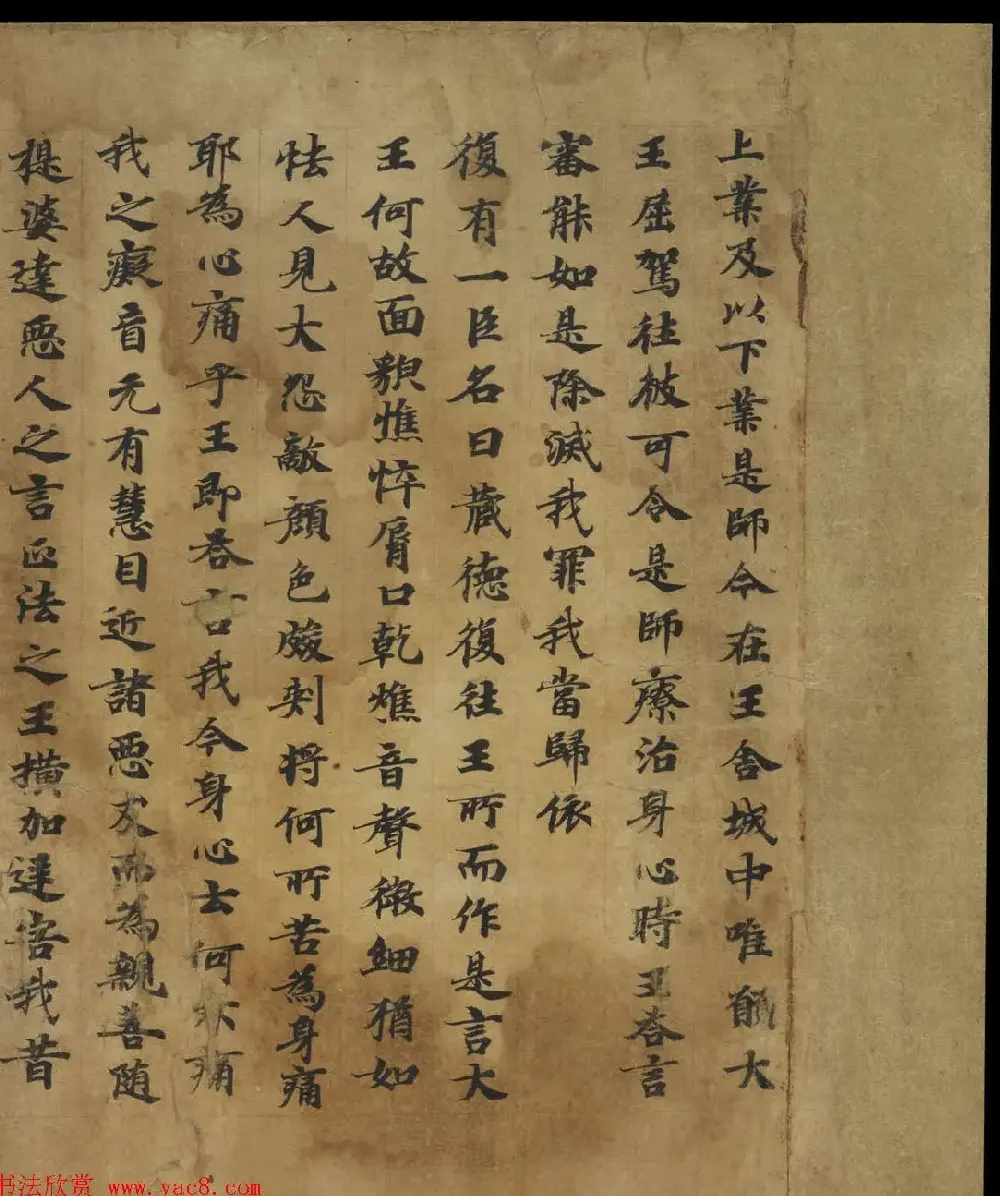 上業及以下業是師今在王舍城中唯願大
王屈駕往彼可令是師療治身心時王荅言
審能如是除滅我罪我當歸依
復有一臣名曰藏德復往王所而作是言大
王何故面貌憔悴脣口乾燋音聲微細猶如
怯人見大怨敵顔色皴剥将何所苦為身痛
耶為心痛乎王即荅言我今身心云何不痛
我之癡盲无有慧目近諸惡友而為親善随
提婆達惡人之言正法之王横加逆害我昔
书法欣赏 www.yac8.com